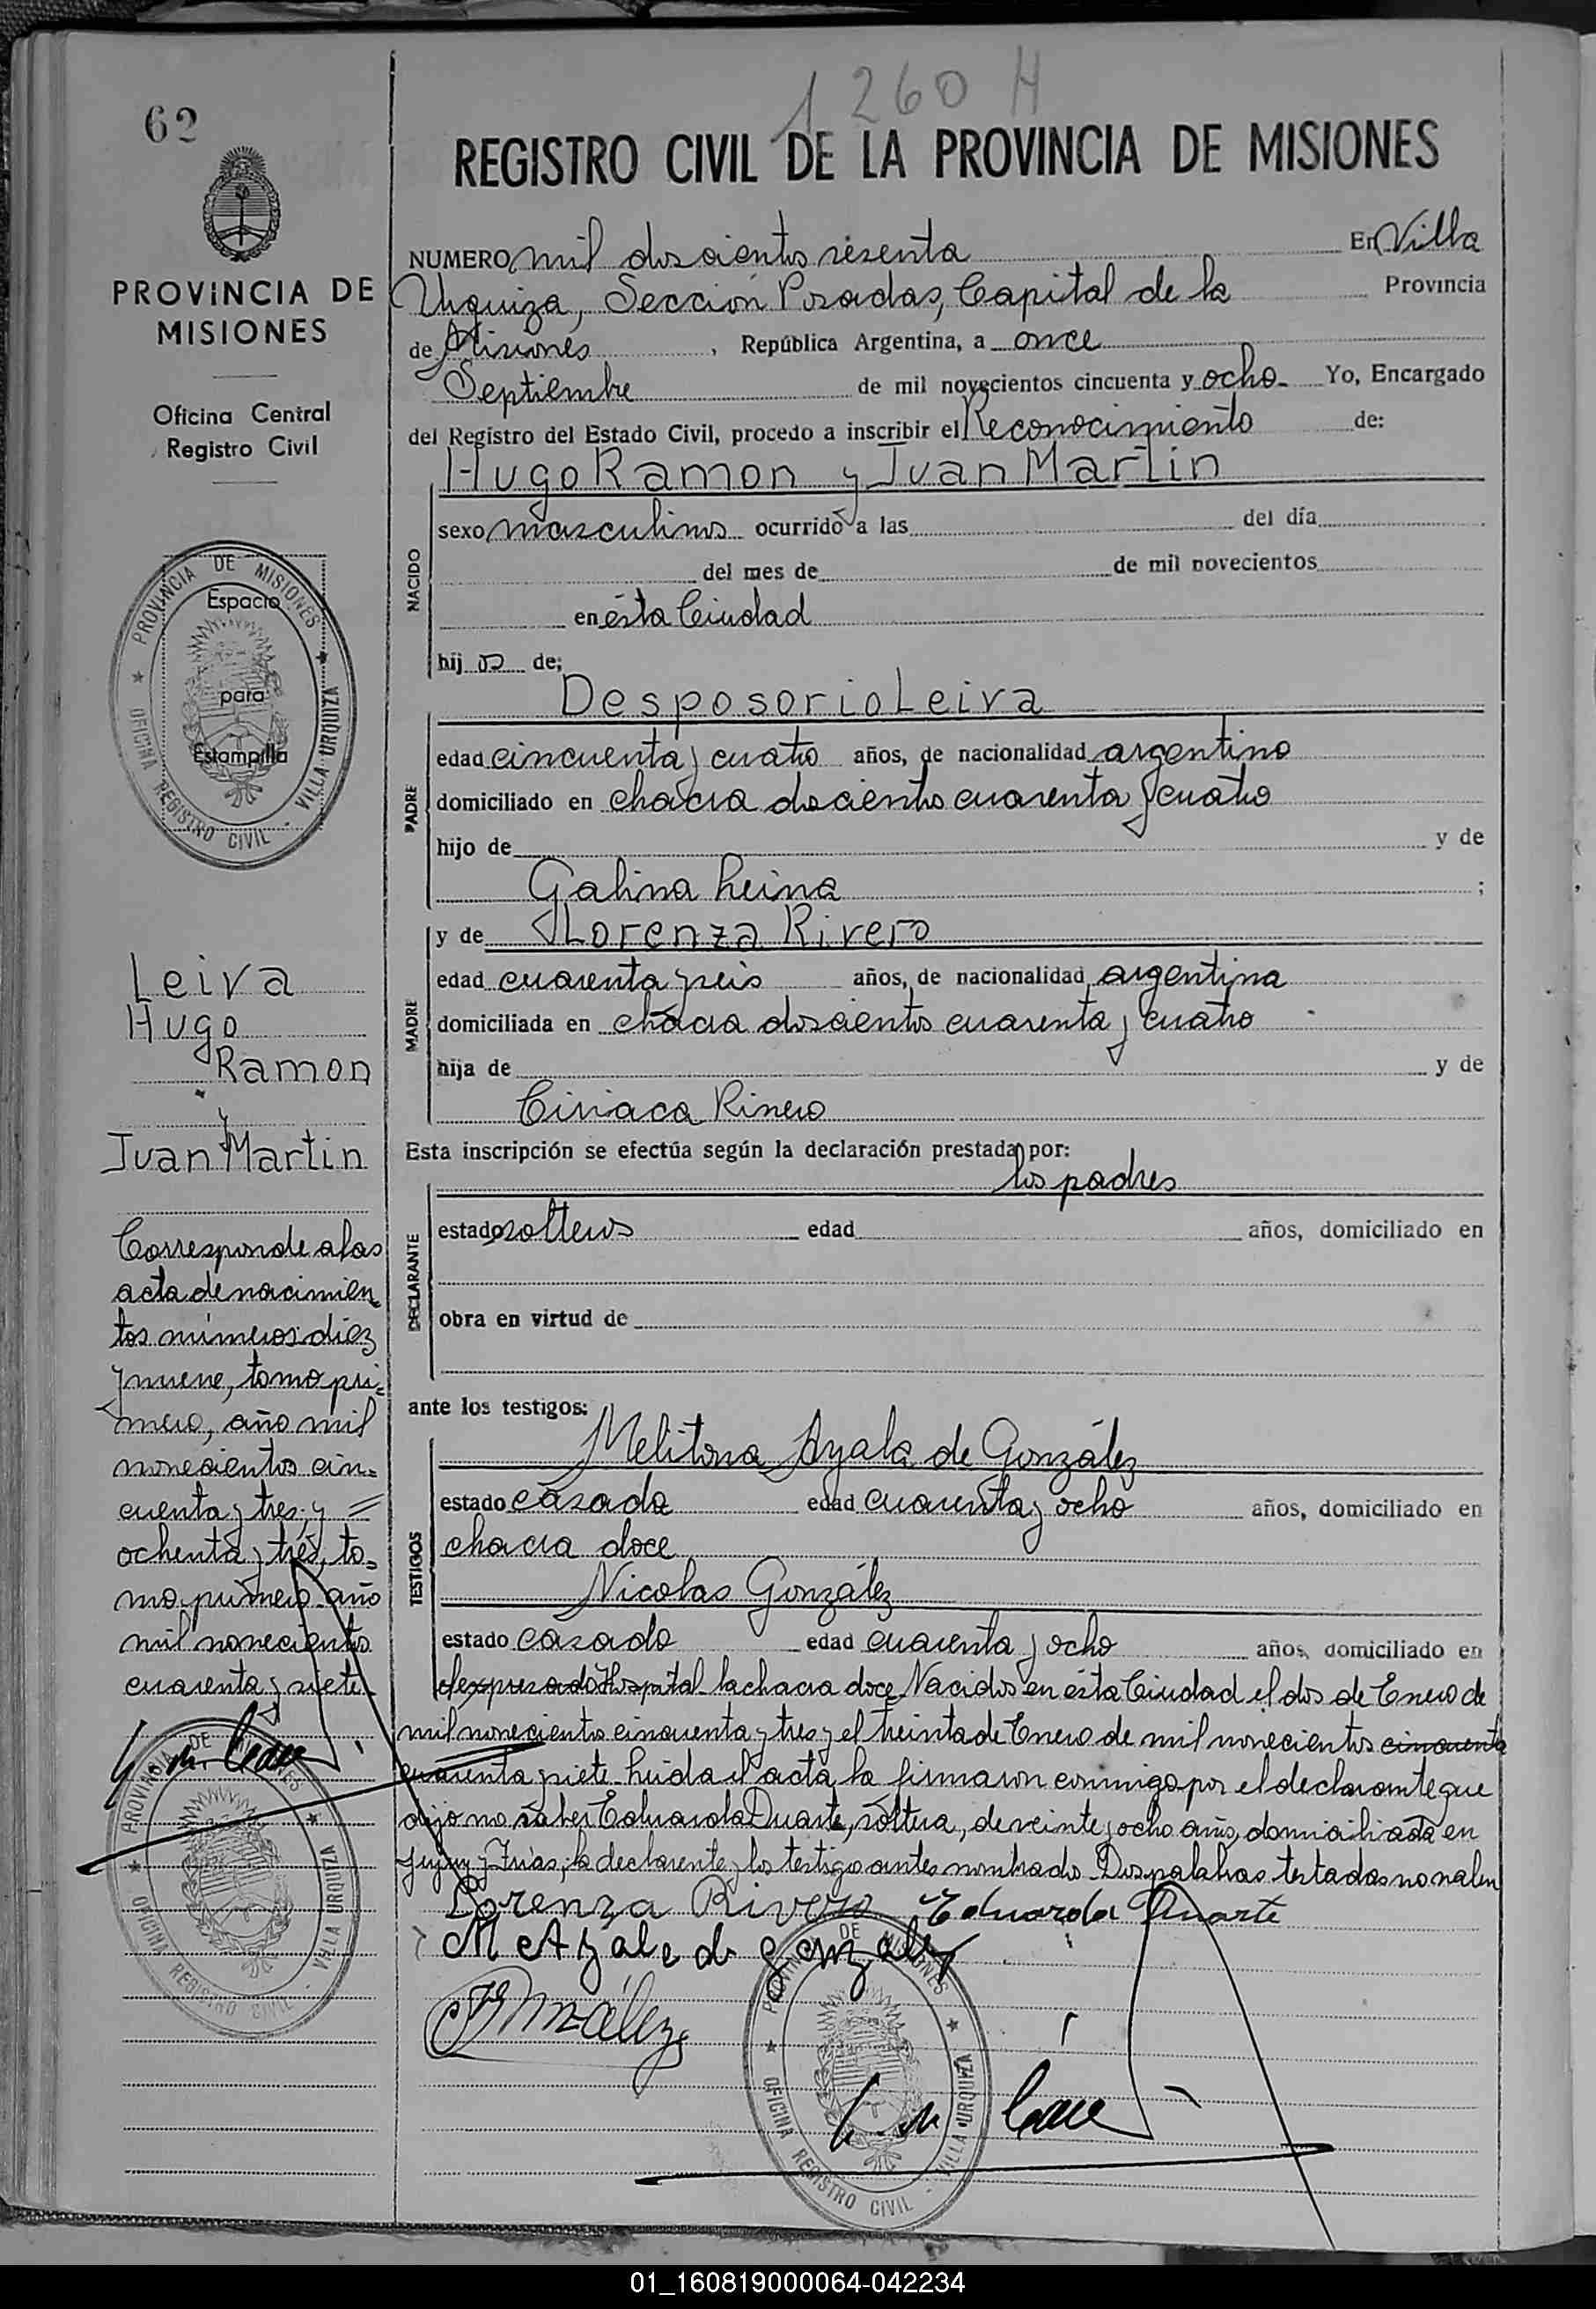 1260 H
62
REGISTRO CIVIL DE LA PROVINCIA DE MISIONES
PROVINCIA DE
MISIONES
Oficina Central
Registro Civil
PROVINCIA DE MISIONES
OFICINA REGISTRO CIVIL - VILLA URQUIZA
Espacio
para
Estampilla
Leiva
Hugo
Ramon
y
Juan Martin
Corresponde a las
acta de nacimien-
tos números diez
y nueve, tomo pri-
mero, año mil
novecientos cin-
cuenta y tres; y =
ochenta y tres, to-
mo primero año
mil novecientos
cuarenta y siete
PROVINCIA DE MISIONES
OFICINA REGISTRO CIVIL - VILLA URQUIZA
NUMERO mil doscientos sesenta En Villa
Urquiza, Sección Posadas, Capital de la Provincia
de Misiones, República Argentina, a once
Septiembre de mil novecientos cincuenta y ocho- Yo, Encargado
del Registro del Estado Civil, procedo a inscribir el Reconocimiento de:
Hugo Ramon y Juan Martin
NACIDO
sexo masculinos ocurrido a las del día
del mes de de mil novecientos
en ésta Ciudad
hijos de;
Desposorio Leiva
PADRE
edad cincuenta y cuatro años, de nacionalidad argentino
domiciliado en chacra doscientos cuarenta y cuatro
hijo de y de
Galina Leiva ;
y de Lorenza Rivero
MADRE
edad cuarenta y seis años, de nacionalidad argentina
domiciliada en chacra doscientos cuarenta y cuatro
hija de y de
Ciriaca Rivero
Esta inscripción se efectúa según la declaración prestada por:
los padres
DECLARANTE
estado solteros edad años, domiciliado en
obra en virtud de
ante los testigos:
Melitona Ayala de González
TESTIGOS
estado casada edad cuarenta y ocho años, domiciliado en
chacra doce
Nicolas González
estado casado edad cuarenta y ocho años, domiciliado en
el expresado Hospital la chacra doce Nacidos en ésta Ciudad el dos de Enero de
mil novecientos cincuenta y tres y el treinta de Enero de mil novecientos cincuenta
cuarenta y siete leída el acta, la firmaron conmigo por el declarante que
dijo no saber Eduarda Duarte, soltera, de veinte y ocho años, domiciliada en
Jujuy y Frías; la declarente y los testigo antes nombrado. Dos palabras testadas no valen
Lorenza Rivero Eduarda Duarte
M Ayala de Gonzalez
González
PROVINCIA DE MISIONES
OFICINA REGISTRO CIVIL - VILLA URQUIZA
01_160819000064-042234